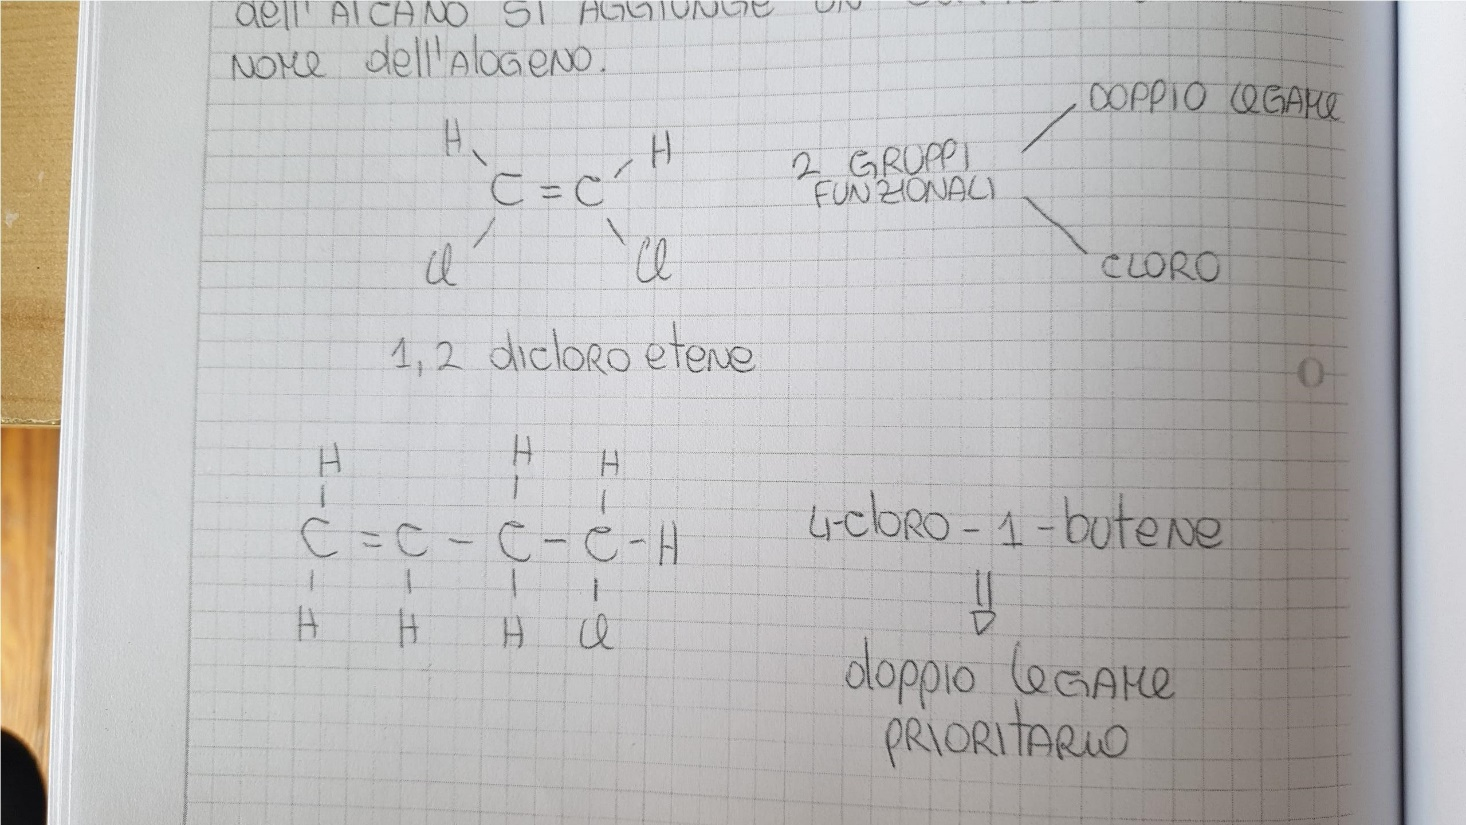 dell'ALCANO SI AGGIUNGE UN
NOME dell'AlOGENO.
DOPPIO LEGAME
H H
2 GRUPPI
FUNZIONALI
C = C
Cl Cl
CLORO
1,2 dicloro etene
H H H
C = C - C - C - H
H H H Cl
4-cloro-1-butene
doppio legame
PRIORITARIO